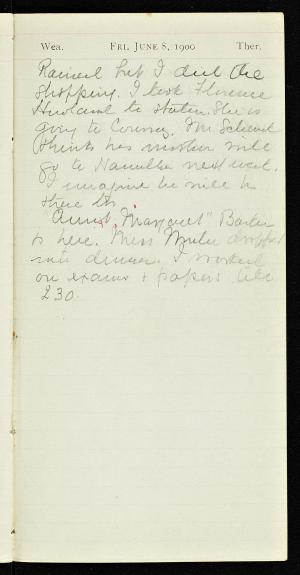 Wea. FRI. JUNE 8, 1900 Ther.
Rained but I did the
shopping. I took Florence
to station. She is
going to . Mr
thinks his mother will
go to next week.
I imagine he will be
there
"Aunt Margaret" Baker
is here. Miss dropped
into dinner. I worked
on exams + papers till
2.30.